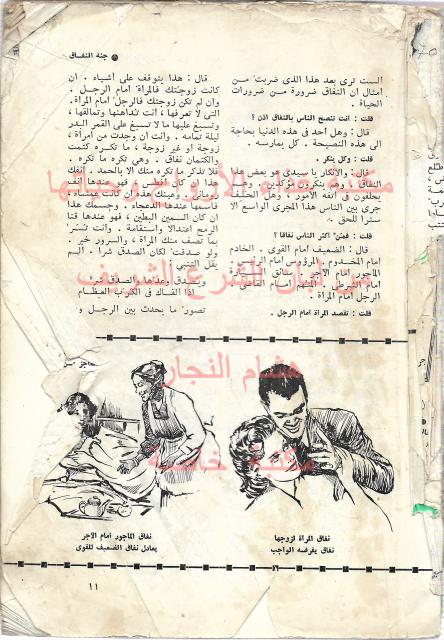 جنة النفاق
ألست ترى بعد هذا الذى ضربت من
أمثال أن النفاق ضرورة من ضرورات
الحياة .
قلت : أنت تنصح الناس بالنفاق اذن ؟
قال : وهل أحد فى هذه الدنيا بحاجة
الى هذه النصيحة . كل يمارسه .
قلت : وكل ينكر .
قال : والانكار يا سيدى هو بعض
النفاق ، وهل ينكرون مؤكدين ، وهل
يحلفون فى أتفه الأمور ، وهل الحلف
جرى بين الناس هذا المجرى الواسع الا
سترا للحق .
قلت : فمن أكثر الناس نفاقا ؟
قال : الضعيف أمام القوى . الخادم
أمام المخدوم . المرؤوس أمام الرئيس .
المأجور أمام الآجر . سائق السيارة
أمام الشرطى . المتهم أمام القاضى .
الرجل أمام المرأة .
قلت : تقصد المرأة أمام الرجل .
قال : هذا يتوقف على أشياء . ان
كانت زوجتك فالمرأة أمام الرجل .
وان لم تكن زوجتك فالرجل أمام المرأة .
التى لا تعرفها ، أنت تداهنها وتمالقها ،
وتسبغ عليها ما لا تسبغ على القمر البدر
ليلة تمامه . وانت ان وجدت من امرأة ،
زوجة أو غير زوجة ، ما تكره كتمت
والكتمان نفاق . وهى تكره ما تكره .
فلا تذكر ما تكره منك الا بالحمد . أنفك
هذا ان كان أفطس فهو عندها أنف
رومانى . وعينك هذه ان كانت عمشاء ،
فاسمها عندها الدعجاء . وجسمك هذا
ان كان السمين البطين ، فهو عندها قنا
الرمح اعتدالا واستقامة . وأنت تستر
بما تصف منك المرأة ، والسرور خير .
ولو صدقت لكان الصدق شرا . ألم
يقل المتنبى :
تصور ما يحدث بين الرجل و
مكتبة لسان العرب
هشام النجار
مكتبة خاصة
نفاق المرأة لزوجها
نفاق يفرضه الواجب
نفاق المأجور أمام الآجر
يعادل نفاق الضعيف للقوى
١١